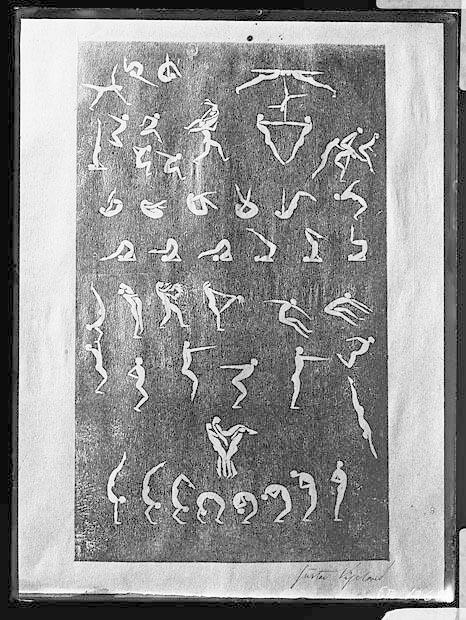 Gustav Vigeland